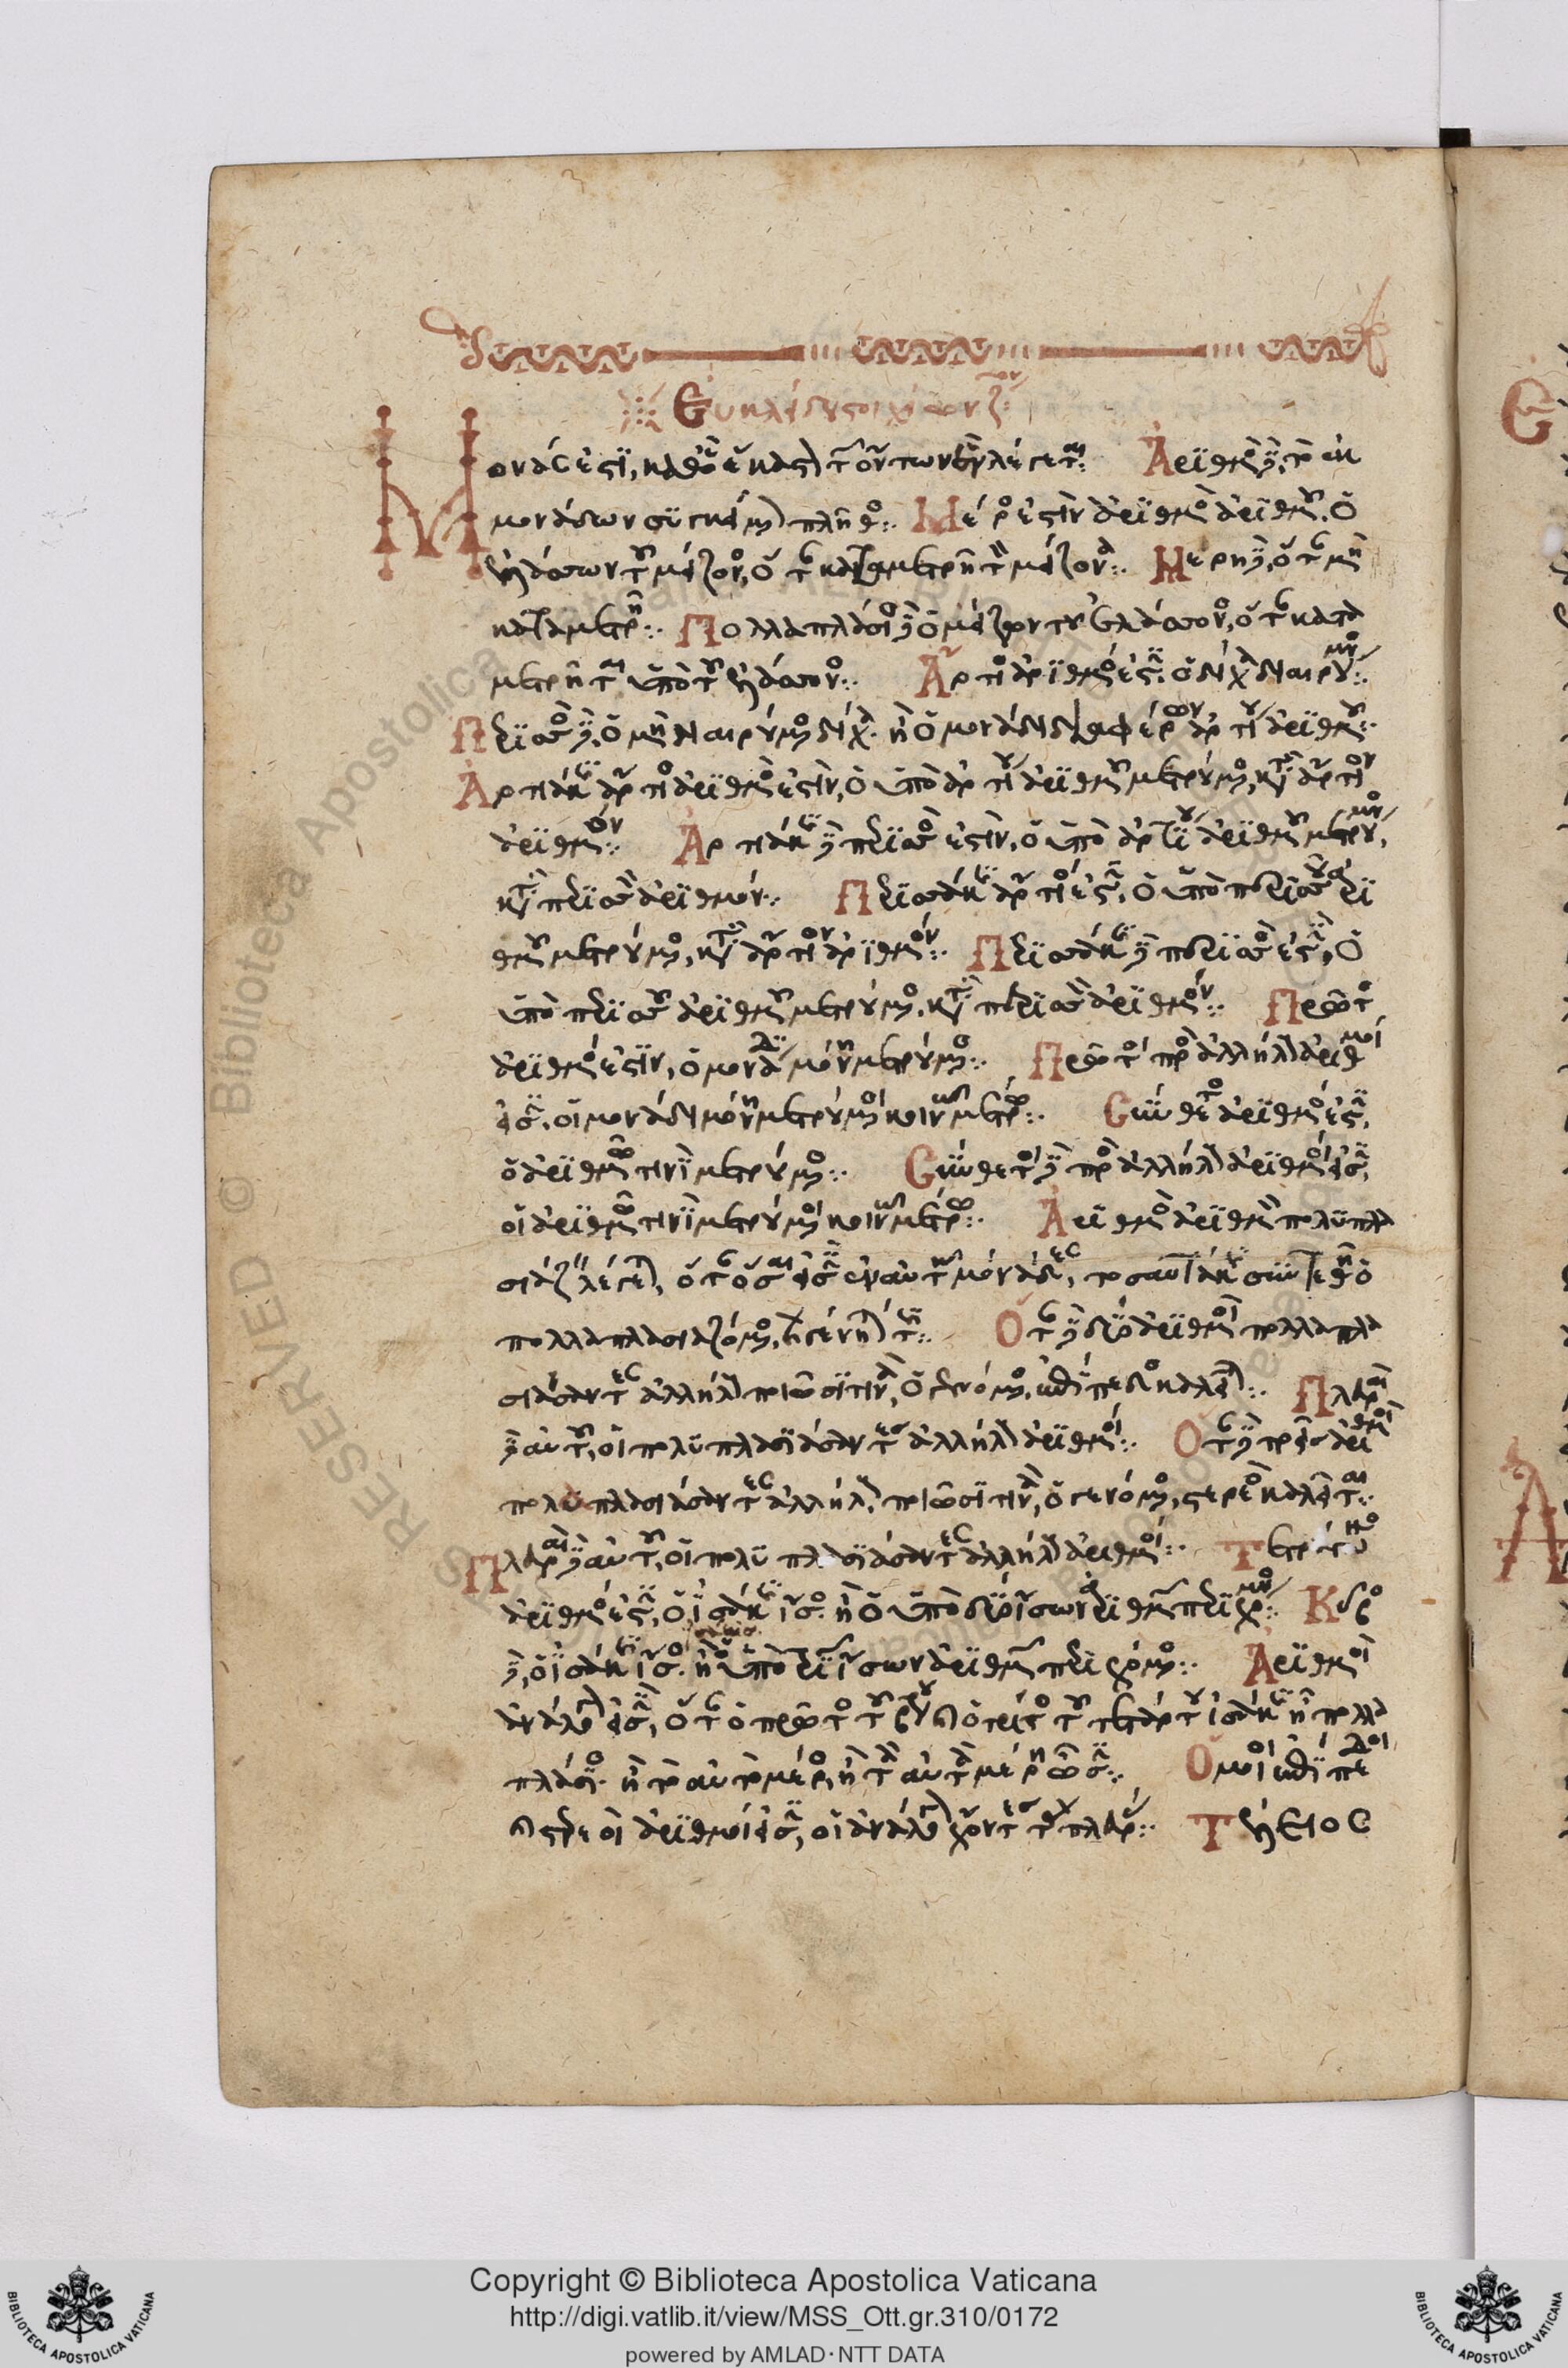 Εὐκλείδου στοιχείων ζον
Μονάς ἐστι, καθ' ἣν ἕκαστον τῶν ὄντων ἓν λέγεται: Ἀριθμὸς δὲ, τὸ ἐκ
μονάδων συγκείμενον πλῆθος: Μέρος ἐστὶν ἀριθμὸς ἀριθμοῦ, ὁ
ἐλάσσων τοῦ μείζονος, ὅταν καταμετρῇ τὸν μείζονα: Μέρη δὲ, ὅταν μὴ
καταμετρῇ: Πολλαπλάσιος δὲ ὁ μείζων τοῦ ἐλάσσονος, ὅταν κατα
μετρῆται ὑπὸ τοῦ ἐλάσσονος: Ἄρτιος ἀριθμός ἐστιν, ὁ δίχα διαιρούμενος:
Περισσὸς δὲ, ὁ μὴ διαιρούμενος δίχα. ἢ ὁ μονάδι διαφέρων ἀρτίου ἀριθμοῦ:
Ἀρτιάκις ἄρτιος ἀριθμός ἐστιν, ὁ ὑπὸ ἀρτίου ἀριθμοῦ μετρούμενος, κατὰ ἄρτιον
ἀριθμόν: Ἀρτιάκις δὲ περισσός ἐστιν, ὁ ὑπὸ ἀρτίου ἀριθμοῦ μετρούμενος,
κατὰ περισσὸν ἀριθμόν: Περισσάκις ἄρτιός ἐστιν, ὁ ὑπὸ περισσοῦ ἀρι
θμοῦ μετρούμενος, κατὰ ἄρτιον ἀριθμόν: Περισσάκις δὲ περισσός ἐστιν, ὁ
ὑπὸ περισσοῦ ἀριθμοῦ μετρούμενος, κατὰ περισσὸν ἀριθμόν: Πρῶτος
ἀριθμός ἐστιν, ὁ μονάδι μόνῃ μετρούμενος: Πρῶτοι πρὸς ἀλλήλους ἀριθμοί
εἰσιν, οἱ μονάδι μόνῃ μετρούμενοι κοινῷ μέτρῳ: Σύνθετος ἀριθμός ἐστιν,
ὁ ἀριθμῷ τινὶ μετρούμενος: Σύνθετοι δὲ πρὸς ἀλλήλους ἀριθμοί εἰσιν,
οἱ ἀριθμῷ τινὶ μετρούμενοι κοινῷ μέτρῳ: Ἀριθμὸς ἀριθμὸν πολυπλα
σιάζειν λέγεται, ὅταν ὅσαι εἰσὶν ἐν αὐτῷ μονάδες, τοσαυτάκις συντεθῇ ὁ
πολλαπλασιαζόμενος, καὶ γένηταί τις: Ὅταν δὲ δύο ἀριθμοὶ πολλαπλα
σιάσαντες ἀλλήλους ποιῶσί τινα, ὁ γενόμενος, ἐπίπεδος καλεῖται: Πλευραὶ
δὲ αὐτοῦ, οἱ πολυπλασιάσαντες ἀλλήλους ἀριθμοί: Ὅταν δὲ τρεῖς ἀριθμοὶ
πολυπλασιάσαντες ἀλλήλους, ποιῶσί τινα, ὁ γενόμενος, στερεὸς καλεῖται:
Πλευραὶ δὲ αὐτοῦ, οἱ πολυπλασιάσαντες ἀλλήλους ἀριθμοί: Τετράγωνος
ἀριθμός ἐστιν, ὁ ἰσάκις ἴσος. ἢ ὁ ὑπὸ δύο ἴσων ἀριθμῶν περιεχόμενος: Κύβος
δὲ, ὁ ἰσάκις ἴσος ἰσάκις. ἢ ὁ ὑπὸ τριῶν ἴσων ἀριθμῶν περιεχόμενος: Ἀριθμοὶ
ἀνάλογόν εἰσιν, ὅταν ὁ πρῶτος τοῦ δευτέρου καὶ ὁ τρίτος τοῦ τετάρτου ἰσάκις ᾖ πολλα
πλάσιος. ἢ τὸ αὐτὸ μέρος, ἢ τὰ αὐτὰ μέρη ὦσιν: Ὅμοιοι ἐπίπεδοι
καὶ στερεοὶ ἀριθμοί εἰσιν, οἱ ἀνάλογον ἔχοντες τὰς πλευράς: Τέλειος
Copyright © Biblioteca Apostolica Vaticana
http://digi.vatlib.it/view/MSS_Ott.gr.310/0172
powered by AMLAD·NTT DATA
BIBLIOTECA APOSTOLICA VATICANA
BIBLIOTECA APOSTOLICA VATICANA